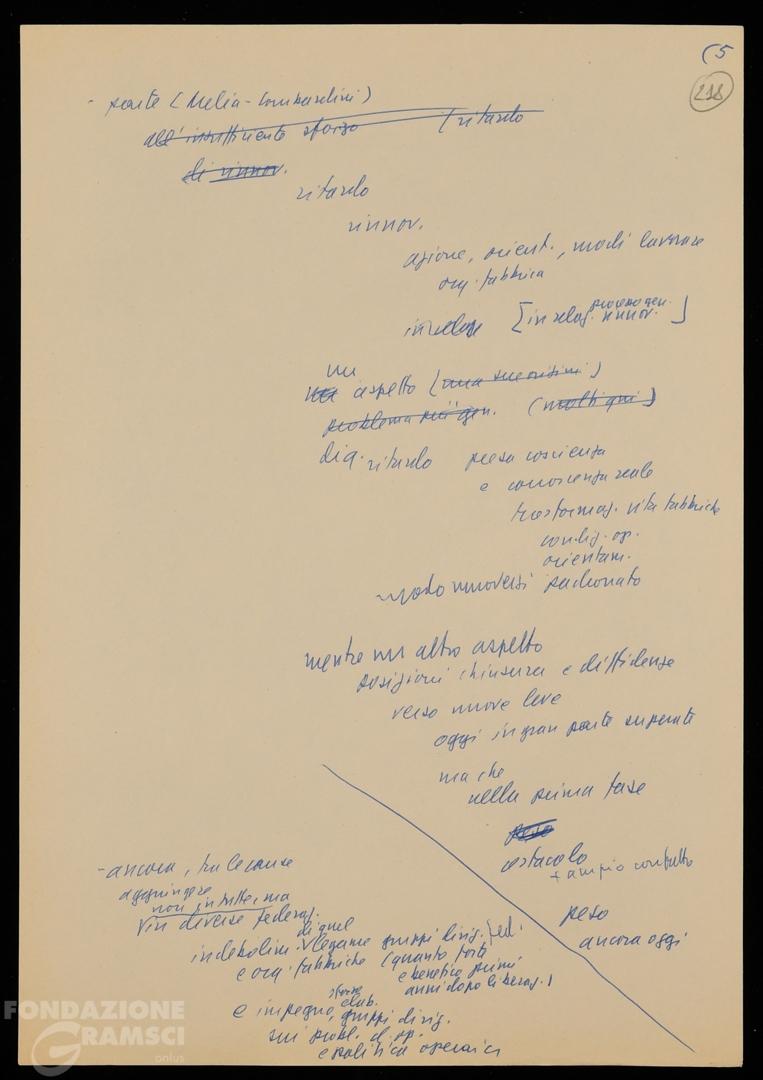 (5
218
- parte (Melia - Lombardini)
all'insufficiente sforzo (ritardo
di rinnov.
ritardo
rinnov.
azione, orient., modi lavorare
org. fabbrica
processo gen.
[in relaz. rinnov. ]
un
aspetto (
problema più gen. (molti qui)
di q. ritardo presa coscienza
e conoscenza reale
trasformaz. vita fabbriche
condiz. op.
orientam.
- modo muoversi padronato
mentre un altro aspetto
posizioni chiusura e diffidenze
verso nuove leve
oggi in gran parte superate
ma che
nella prima fase
peso
ostacolo
+ ampio contatto
peso
ancora oggi
- ancora, tra le cause
aggiungere
non in tutte, ma
in diverse federaz.
di quel
indebolim. legame gruppi dirig. fed.
e org. fabbriche (quanto forte
e benefico primi
anni dopo liberaz.)
sforzo
elab.
e impegno, gruppi dirig.
sui probl. d. op.
e politica operaia
FONDAZIONE
GRAMSCI
onlus